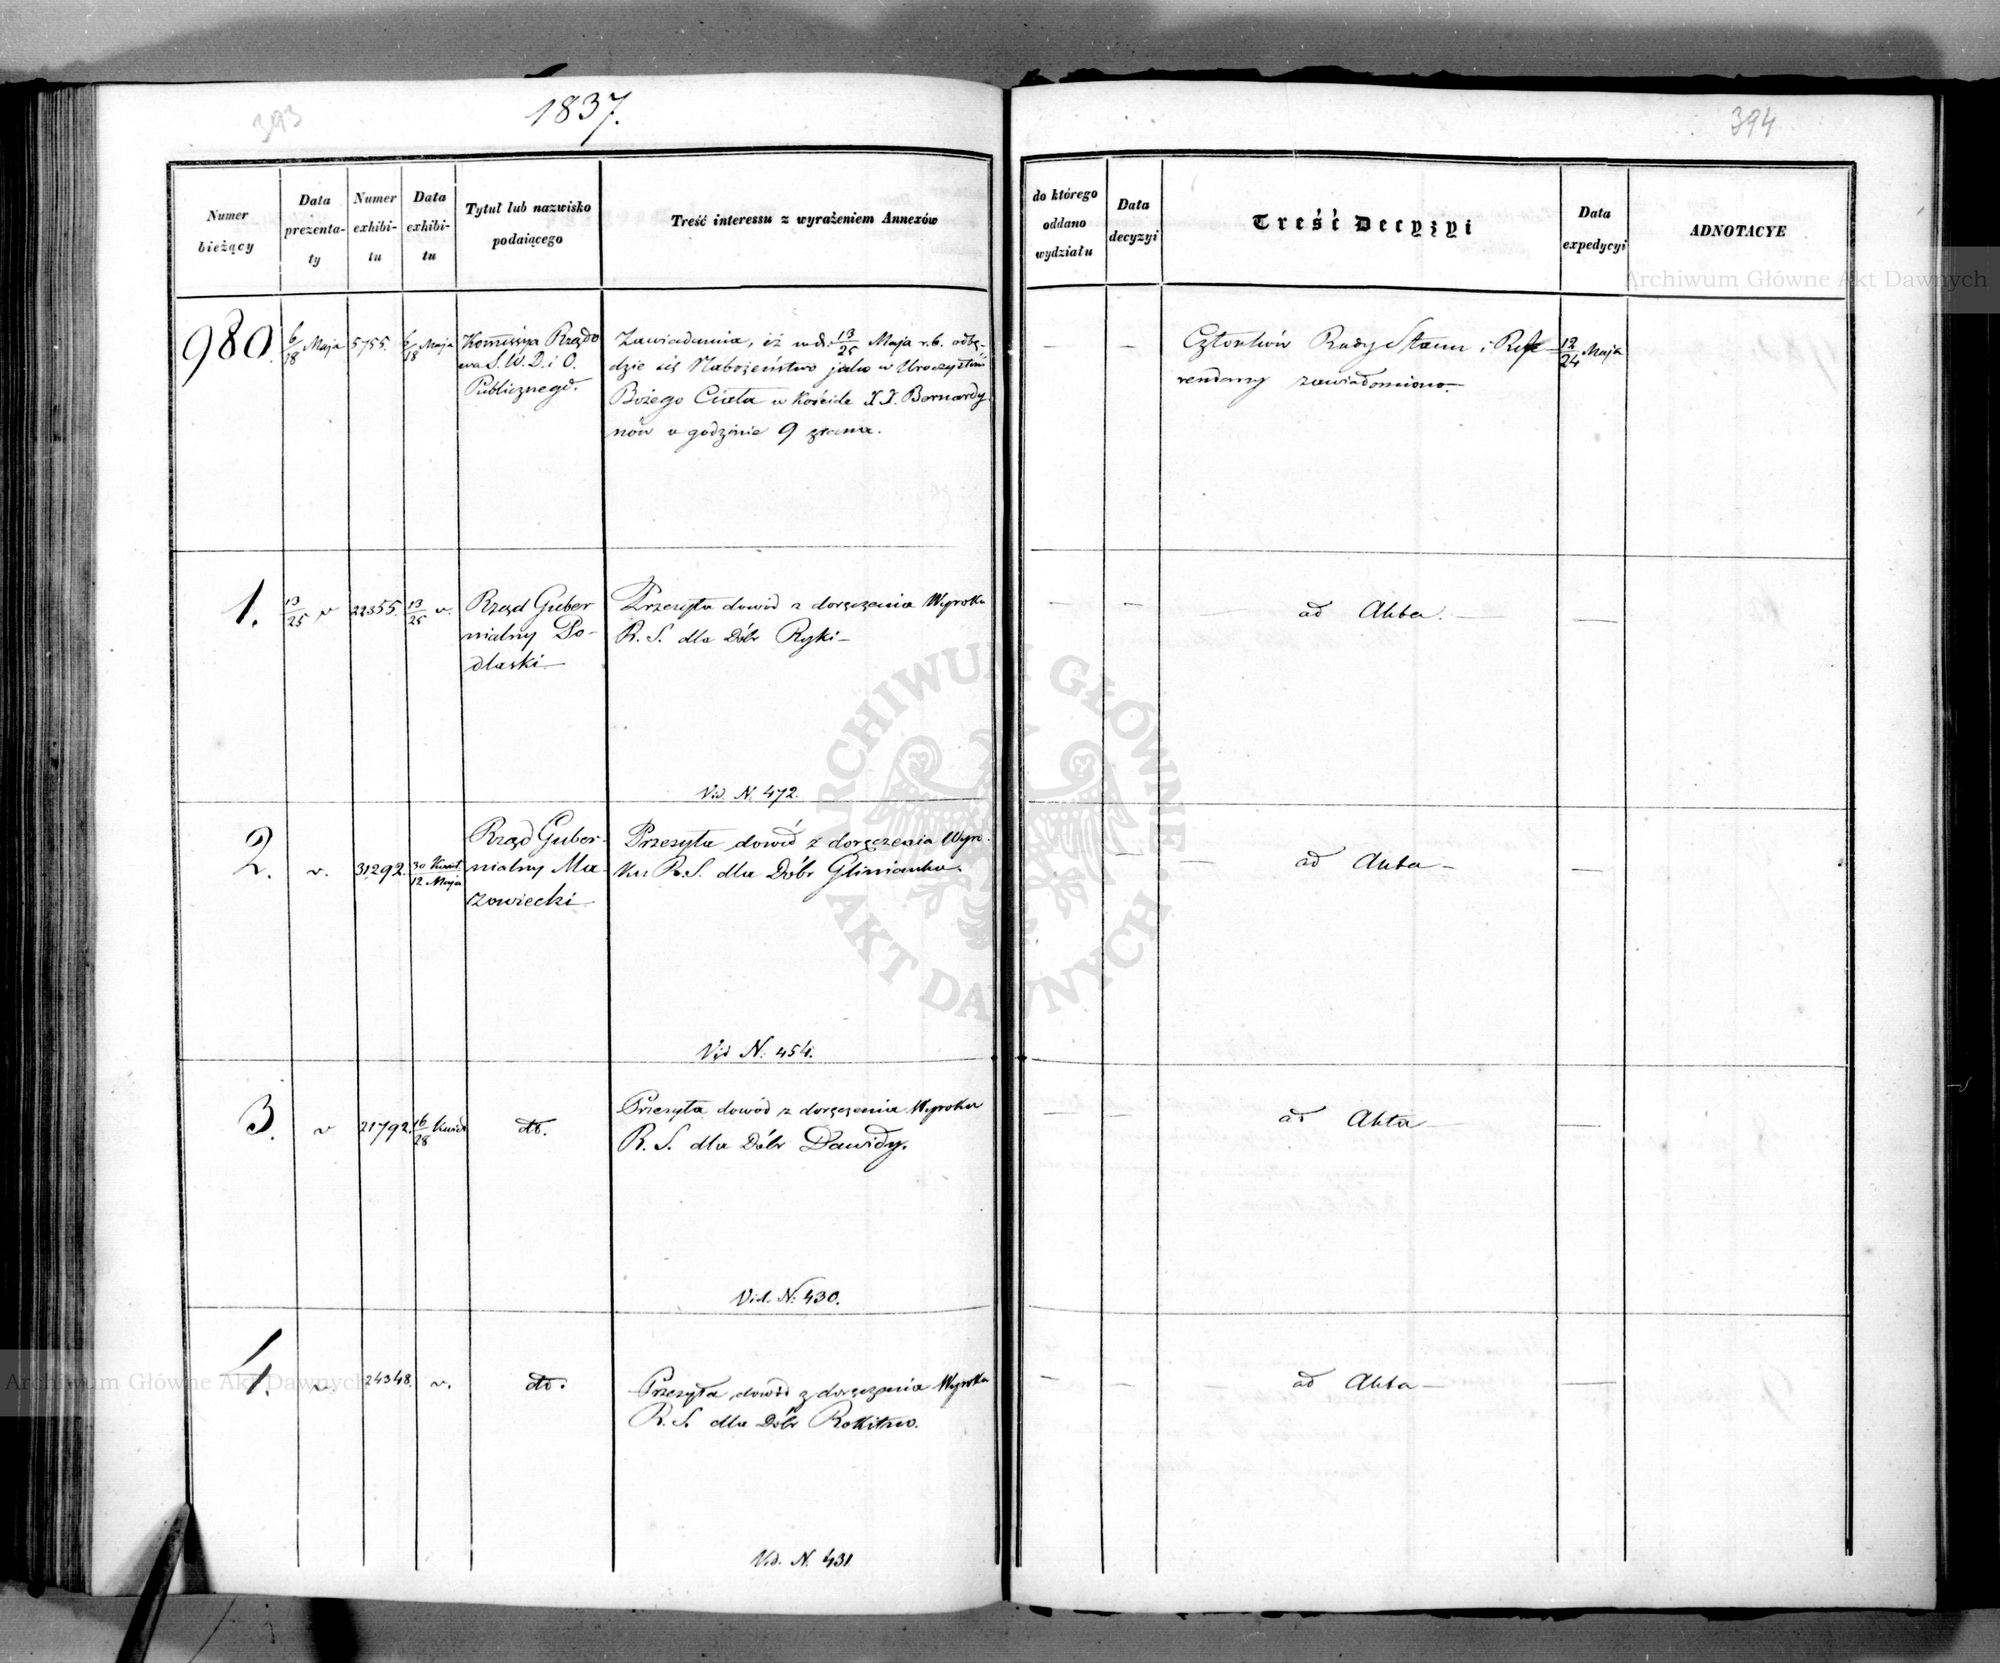 393
1837.
394
Numer bieżący
Data prezenta-ty
Numer exhibi-tu
Data exhibi-tu
Tytuł lub nazwisko podaiącego
Treść interessu z wyrażeniem Annexów
do którego oddano wydziału
Data decyzyi
Treść Decyzyi
Data expedycyi
ADNOTACYE
980. 6/18 Maja 5755. 6/18 Maja
Kommissya Rządo
wa S. W. D. i O.
Publicznego.
Zawiadamia, iż w d. 13/25 Maja r. b. odbę-
dzie się Nabożeństwo jako w Uroczystość
Bożego Ciała w Kościele XX. Bernardy
nów o godzinie 9 zrana.
— —
Członków Rady Stanu i Refe
rendarzy zawiadomiono.—
12/24 Maja
1. 13/25 v 22355. 13/25 v.
Rząd Guber
nialny Po-
dlaski—
Przesyła dowód z doręczenia Wyroku
R. S. dla Dóbr Ryki—
Vid. N. 472.
— — ad Akta. — —
2. v. 31292. 30 Kwiet/12 Maja
Rząd Guber-
nialny Ma
zowiecki—
Przesyła dowód z doręczenia Wyro-
ku R. S. dla Dóbr Glinianka.
Vid N. 454.
— — ad Akta — —
3. v 21792. 16/28 Kwiet
dto.
Przesyła dowód z doręczenia Wyroku
R. S. dla Dóbr Dawidy.
Vid. N. 430.
— — ad Akta — —
4. v. 24348. v.
dto.
Przesyła dowód z doręczenia Wyroku
R. S. dla Dóbr Rokitno.
Vid. N. 431
— — ad Akta — —
Archiwum Główne Akt Dawnych
ARCHIWUM GŁÓWNE AKT DAWNYCH
Archiwum Główne Akt Dawnych